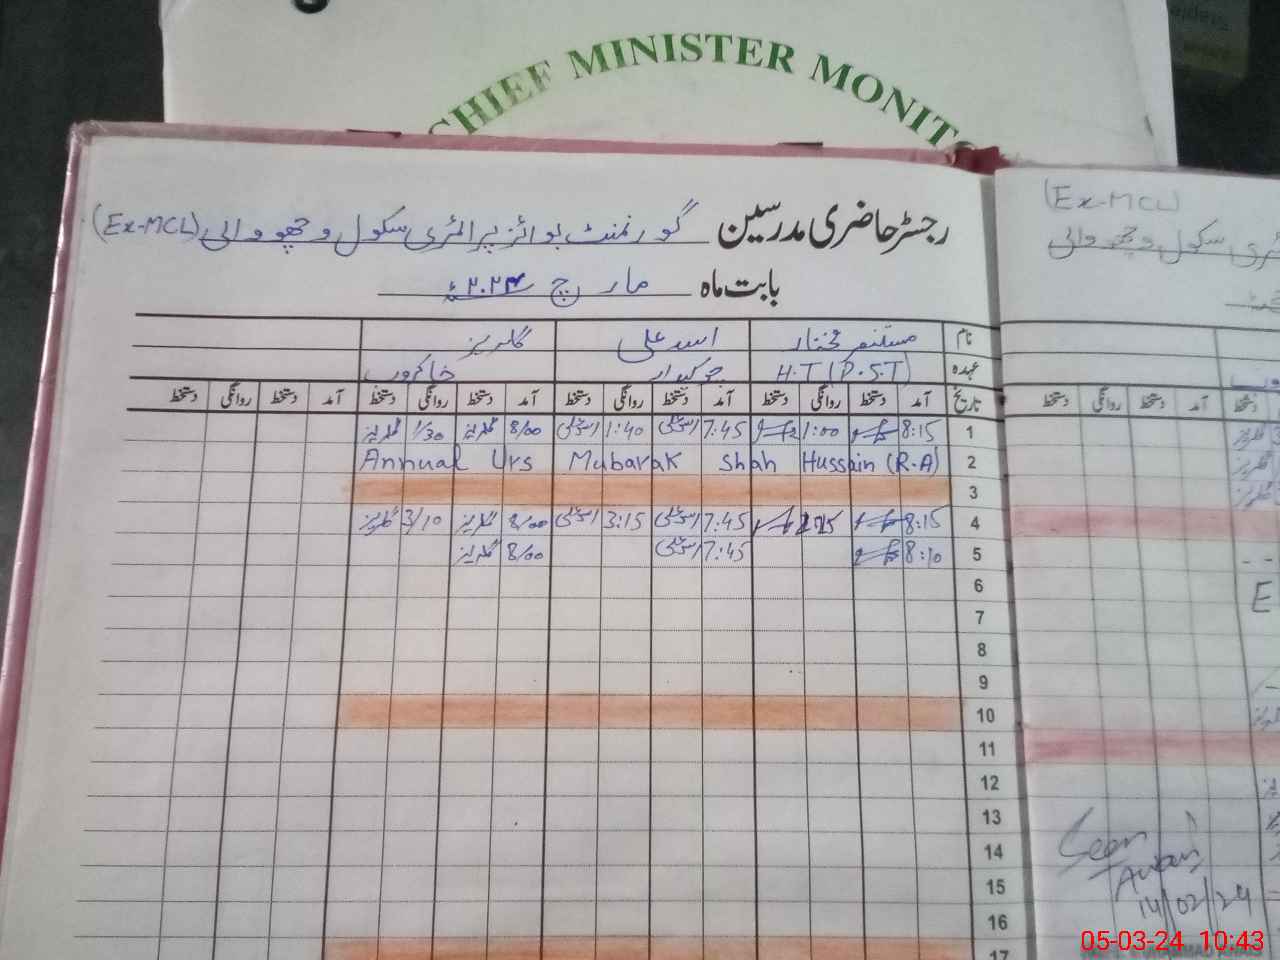 CHIEF MINISTER MONITO
رجسٹر حاضری مدرسین گورنمنٹ بوائز پرائمری سکول وچھووالی (Ex-MCL)
بابت ماہ مارچ ۲۰۲۴ء
نام مستنصر مختار اسد علی گلریز
عہدہ H.T (P.S.T) چوکیدار خاکروب
تاریخ آمد دستخط روانگی دستخط آمد دستخط روانگی دستخط آمد دستخط روانگی دستخط آمد دستخط روانگی دستخط
1 8:15 1:00 7:45 اسد علی 1:40 اسد علی 8/00 گلریز 1/30 گلریز
2 Annual Urs Mubarak Shah Hussain (R.A)
3
4 8:15 7:45 اسد علی 3:15 اسد علی 8/00 گلریز 3/10 گلریز
5 8:10 7:45 اسد علی 8/00 گلریز
6
7
8
9
10
11
12
13
14
15
16
17
(Ex-MCL)
سکول وچھووالی
دستخط آمد دستخط روانگی دستخط
E
Seen
Awais
14/02/24
05-03-24 10:43